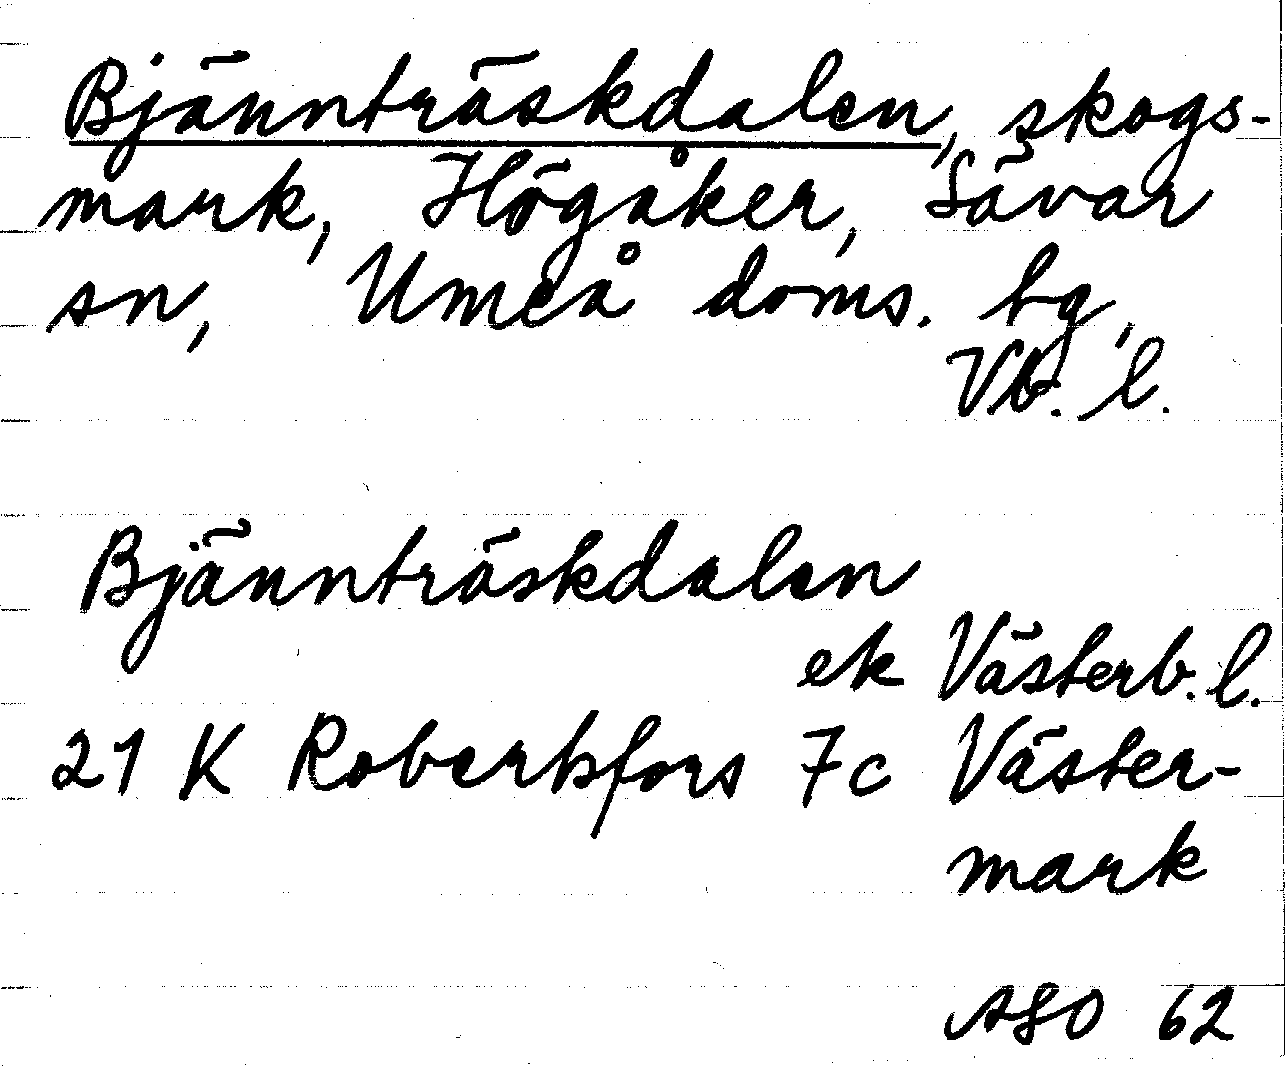 Bjännträskdalen, skogs-
mark, Högåker, Sävar
sn, Umeå doms. bg,
Vb. l.
Bjännträskdalen
ek Västerb. l.
21 K Robertsfors 7c Väster-
mark
ASO 62